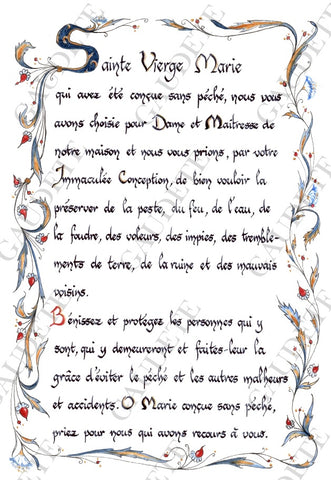 Sainte Vierge Marie
qui avez été conçue sans péché, nous vous
avons choisie pour Dame et Maîtresse de
notre maison et nous vous prions, par votre
Immaculée Conception, de bien vouloir la
préserver de la peste, du feu, de l'eau, de
la foudre, des voleurs, des impies, des tremble-
ments de terre, de la ruine et des mauvais
voisins.
Bénissez et protégez les personnes qui y
sont, qui y demeureront et faites-leur la
grâce d'éviter le péché et les autres malheurs
et accidents. O Marie conçue sans péché,
priez pour nous qui avons recours à vous.
GAUDETE